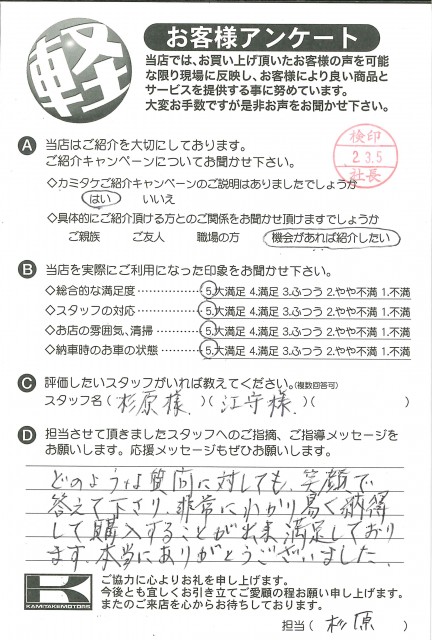 軽
お客様アンケート
当店では、お買い上げ頂いたお客様の声を可能
な限り現場に反映し、お客様により良い商品と
サービスを提供する事に努めています。
大変お手数ですが是非お声をお聞かせ下さい。
A 当店はご紹介を大切にしております。
ご紹介キャンペーンについてお聞かせ下さい。
検印
2.3.5
社長
◇カミタケご紹介キャンペーンのご説明はありましたでしょうか
はい いいえ
◇具体的にご紹介頂ける方とのご関係をお聞かせ頂けますでしょうか
ご親族 ご友人 職場の方 機会があれば紹介したい
B 当店を実際にご利用になった印象をお聞かせ下さい。
◇総合的な満足度 ……………… 5.大満足 4.満足 3.ふつう 2.やや不満 1.不満
◇スタッフの対応 ……………… 5.大満足 4.満足 3.ふつう 2.やや不満 1.不満
◇お店の雰囲気、清掃 ………… 5.大満足 4.満足 3.ふつう 2.やや不満 1.不満
◇納車時のお車の状態 ………… 5.大満足 4.満足 3.ふつう 2.やや不満 1.不満
C 評価したいスタッフがいれば教えてください。(複数回答可)
スタッフ名 ( 杉原様. )( 江守様. )( )
D 担当させて頂きましたスタッフへのご指摘、ご指導メッセージを
お願いします。応援メッセージもぜひお願いします。
どのような質問に対しても、笑顔で
答えて下さり、非常に分かり易く納得
して購入することが出来、満足しており
ます。本当にありがとうございました。
K
KAMITAKEMOTORS
ご協力に心よりお礼を申し上げます。
今後とも宜しくお引き立てご愛顧の程お願い申し上げます。
またのご来店を心からお待ちしております。
担当 ( 杉原 )